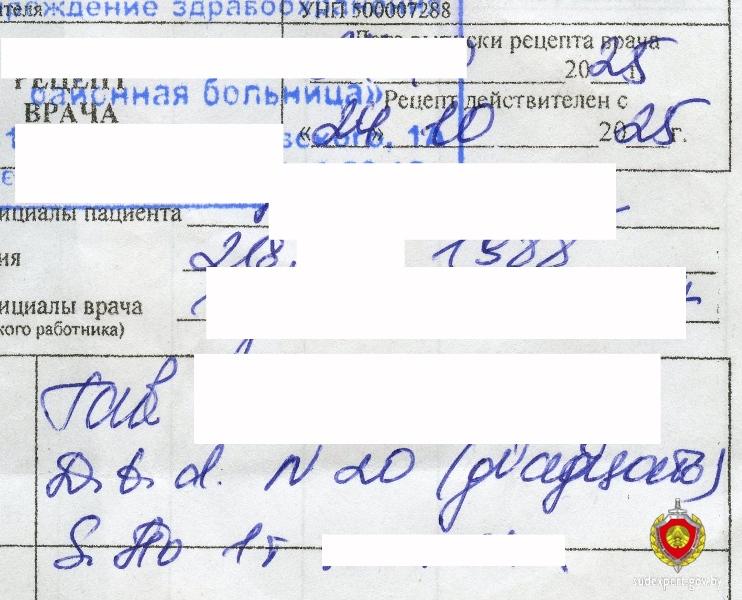 ителя
УНП 500007288
ждение здравоохранения
Дата выписки рецепта врача
2025 г.
РЕЦЕПТ
ВРАЧА
районная больница»
Рецепт действителен с
«24» 10 2025 г.
вского, 17
ициалы пациента
ия 1988
ициалы врача
кого работника)
D.t.d. N 20 (двадцать)
S. По 1т
sudexpert.gov.by